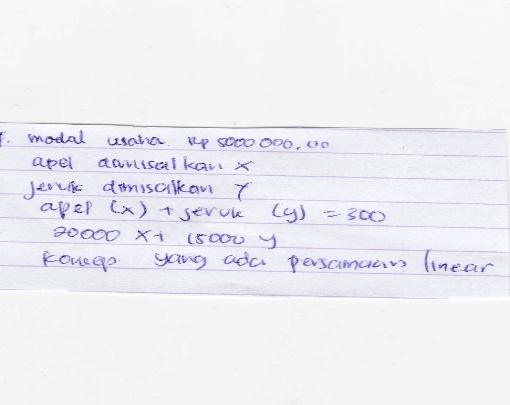 modal usaha Rp 5000 000,00
apel dimisalkan x
jeruk dimisalkan y
apel (x) + jeruk (y) = 300
20000 x + 15000 y
Konsep yang ada persamaan linear